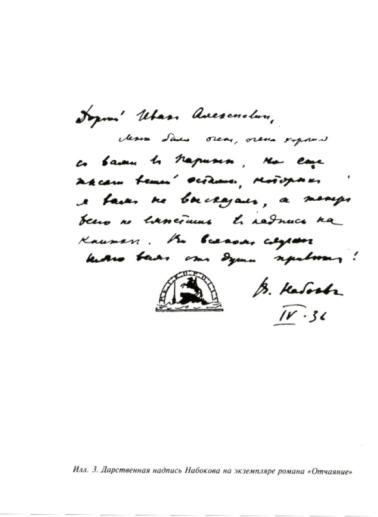 Дорогой Иван Алексеевич,
Мне было очень, очень хорошо
с вами в Париже, но еще
тысяч вещей остались, которых
я вам не высказал, а теперь
всего не вместишь в надпись на
книжке. Во всяком случае
шлю вам от души привет!
В. Набоковъ
IV-36
ПЕТРОПОЛИС
Илл. 3. Дарственная надпись Набокова на экземпляре романа «Отчаяние»